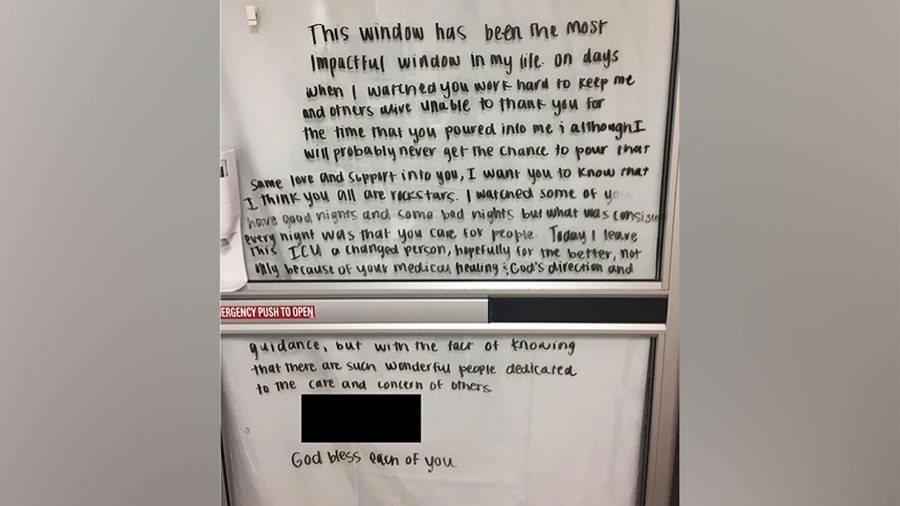 This window has been the most
impactful window in my life. on days
when I watched you work hard to keep me
and others alive unable to thank you for
the time that you poured into me & although I
will probably never get the chance to pour that
same love and support into you, I want you to know that
I think you all are rockstars. I watched some of you
have good nights and some bad nights but what was consistent
every night was that you care for people. Today I leave
this ICU a changed person, hopefully for the better, not
only because of your medical healing & God's direction and
ERGENCY PUSH TO OPEN
guidance, but with the fact of knowing
that there are such wonderful people dedicated
to the care and concern of others.
God bless each of you.